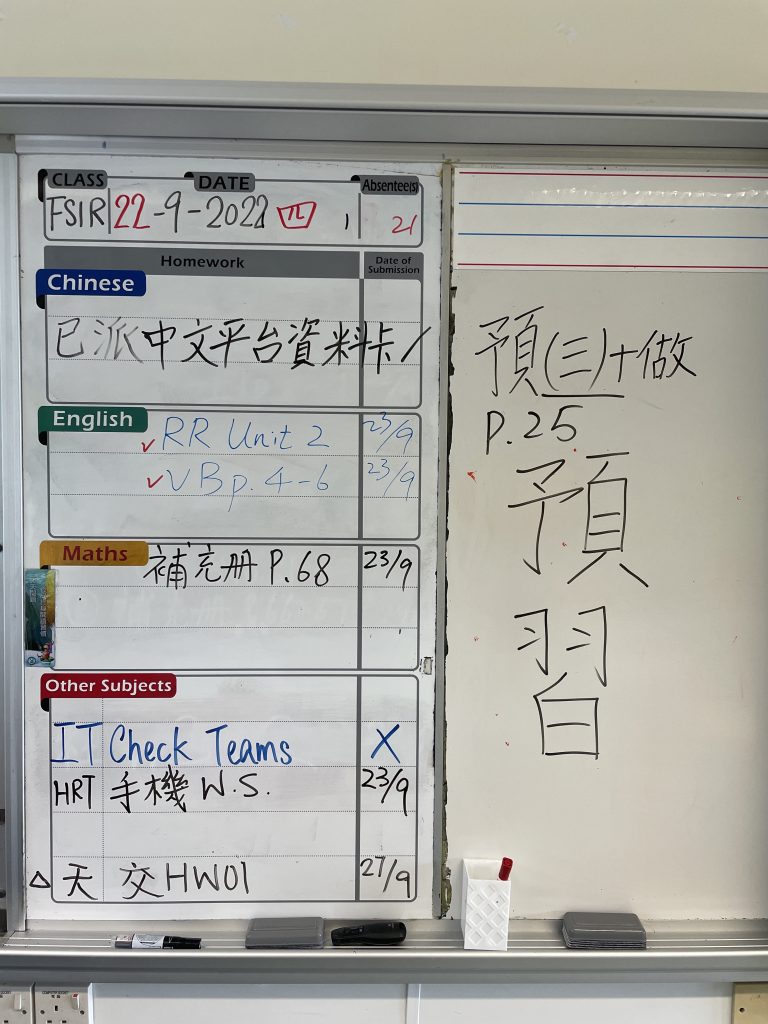 CLASS DATE Absentee(s)
FSIR 22-9-2022 四 1 21
Homework Date of Submission
Chinese
已派中文平台資料卡/
English
RR Unit 2 23/9
VB p. 4-6 23/9
Maths
補充册 P.68 23/9
Other Subjects
IT Check Teams X
HRT 手機 W.S. 23/9
天 交HW01 27/9
預(三)+做
P.25
預
習